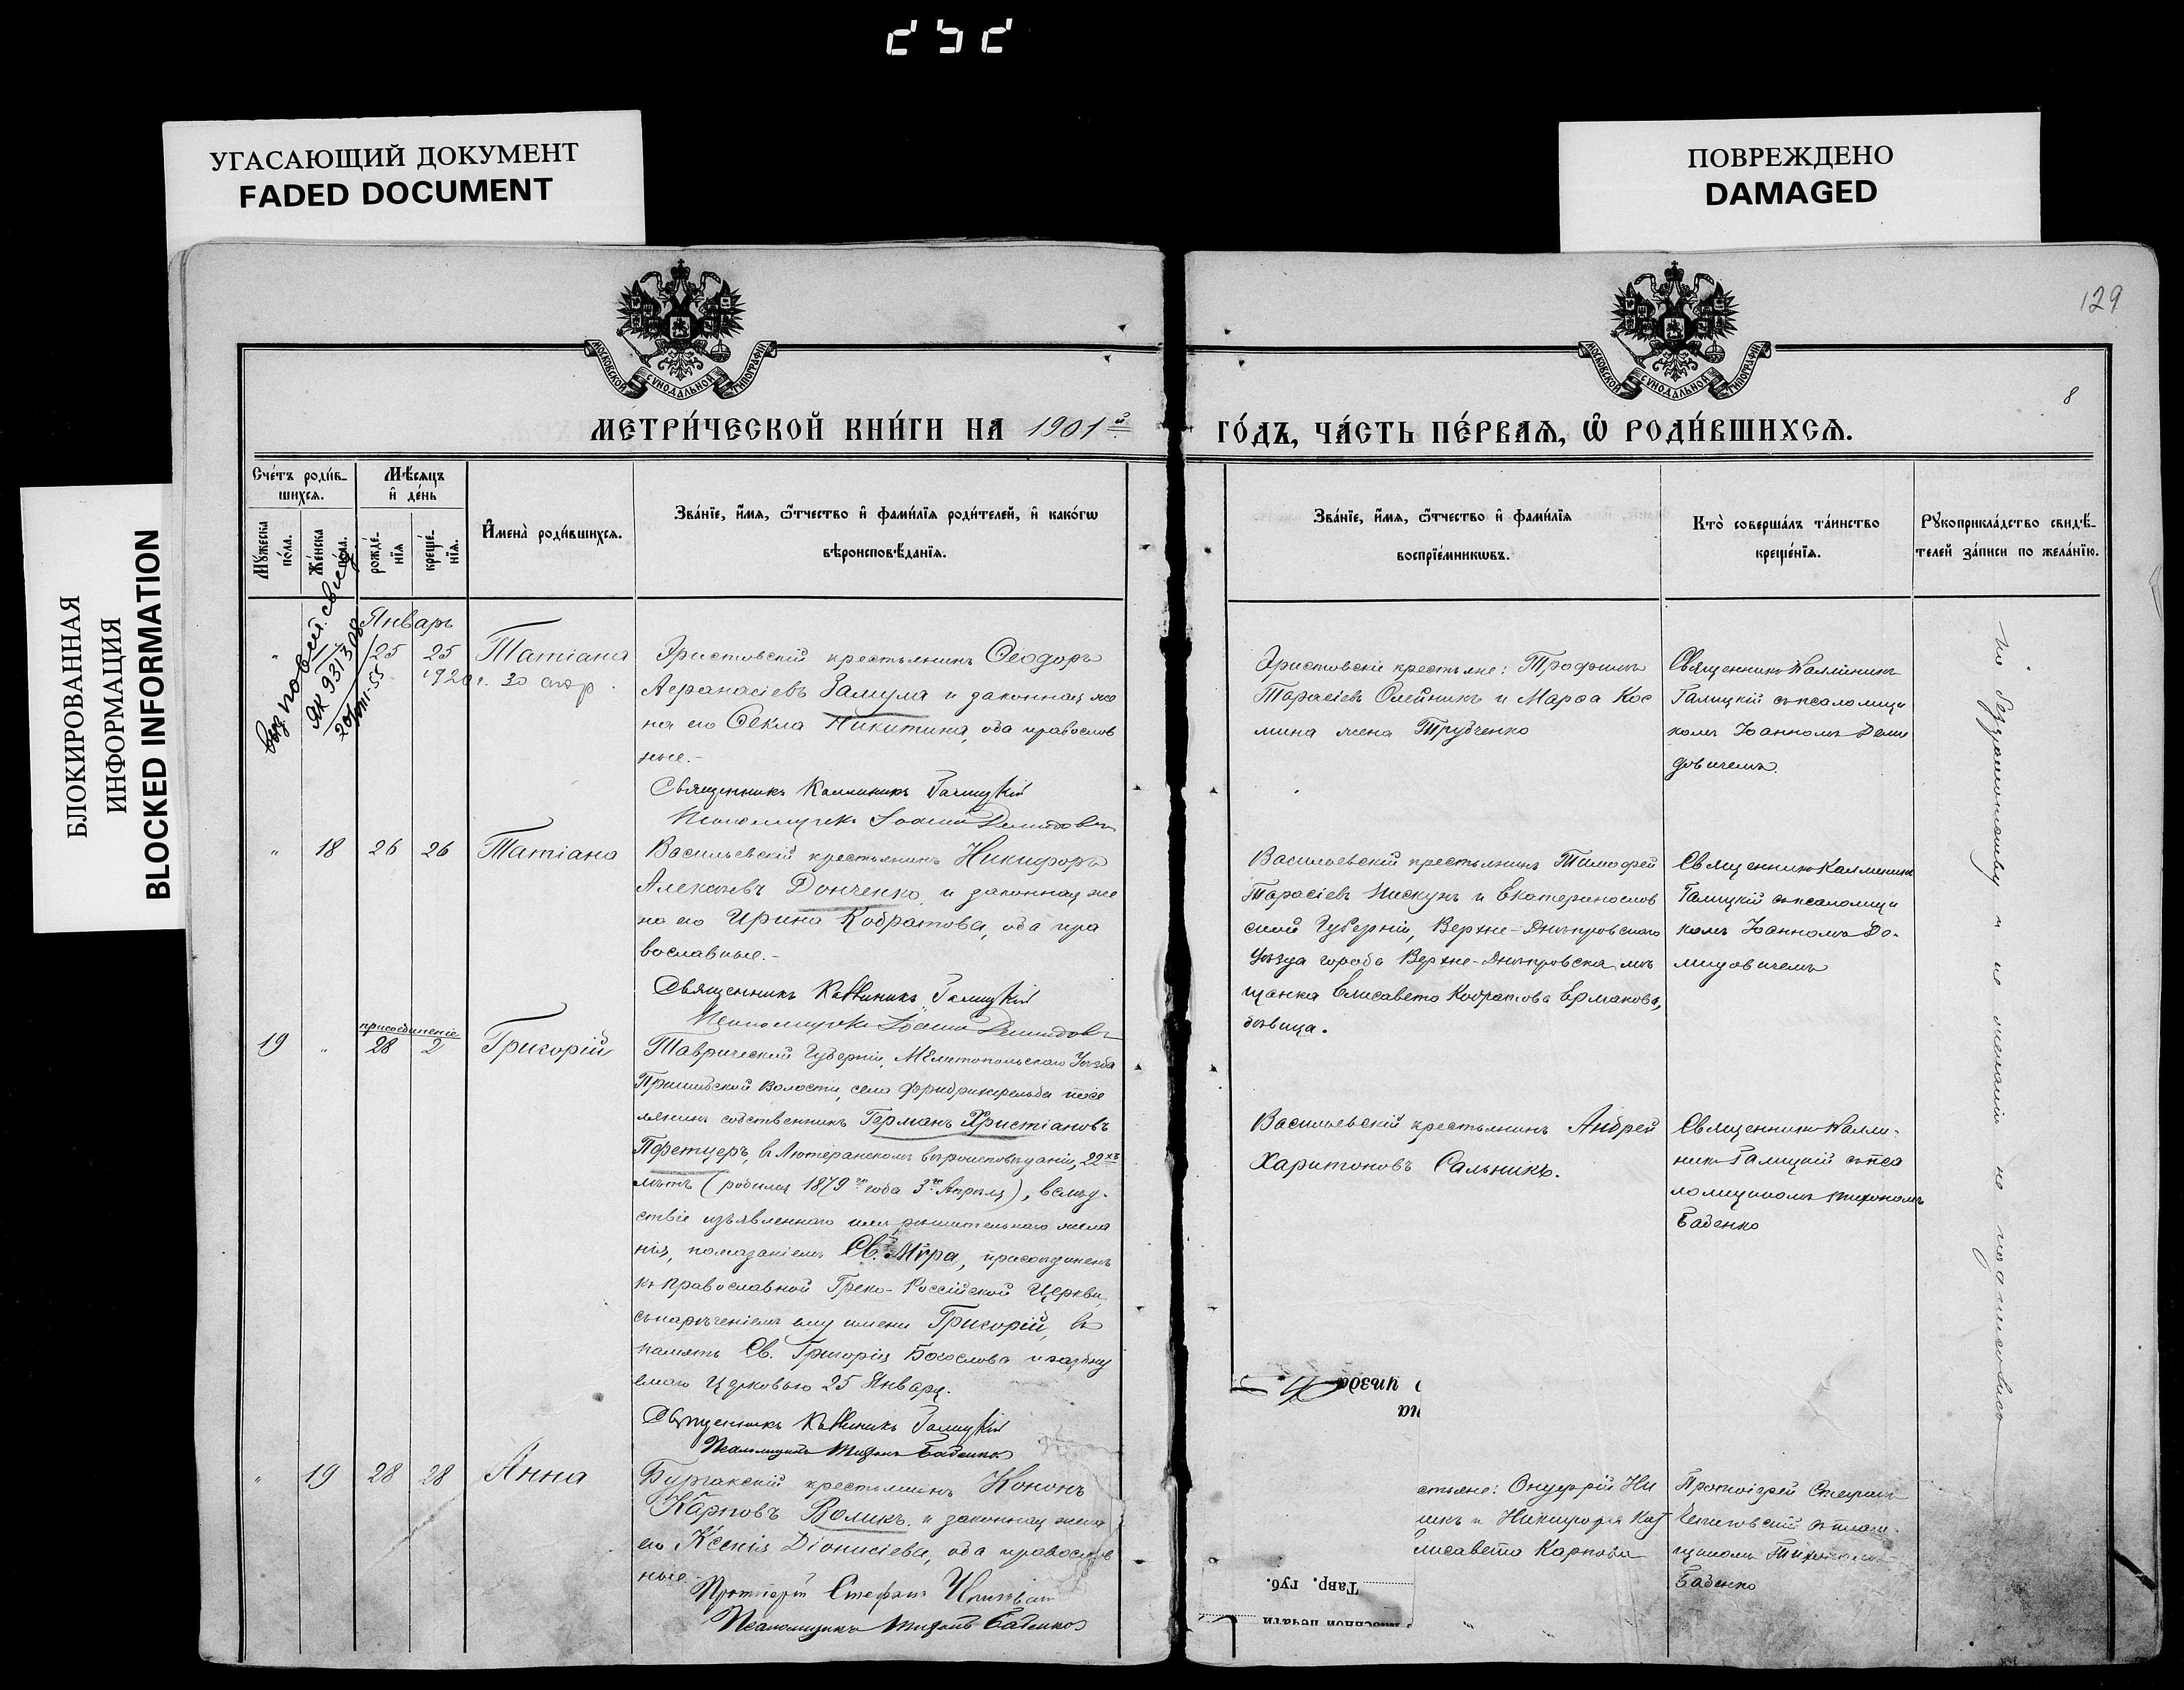 УГАСАЮЩИЙ ДОКУМЕНТ
FADED DOCUMENT
ПОВРЕЖДЕНО
DAMAGED
БЛОКИРОВАННАЯ
ИНФОРМАЦИЯ
BLOCKED INFORMATION
129
8
МОСКОВСКОЙ СУНОДАЛЬНОЙ ТИПОГРАФІИ
МОСКОВСКОЙ СУНОДАЛЬНОЙ ТИПОГРАФІИ
МЕТРИ́ЧЕСКОЙ КНИ́ГИ НА 1901й
ГО́ДЪ, ЧА́СТЬ ПЕ́РВАѦ, Ѡ҆ РОДИ́ВШИХСѦ.
Сче́тъ роди́в-
шихсѧ.
Мꙋжеска по́ла.
Же́нска по́ла.
Мѣ́сѧцъ
и҆ де́нь
рожде́-
нїѧ
креще́-
нїѧ.
И҆мена̀ роди́вшихсѧ.
Зва́нїе, и҆́мѧ, ѻ҆́тчество и҆ фами́лїѧ роди́телей, и҆ како́гѡ
вѣроисповѣ́данїѧ.
Зва́нїе, и҆́мѧ, ѻ҆́тчество и҆ фами́лїѧ
воспрїе́мникѡвъ.
Кто̀ соверша́лъ та́инство
креще́нїѧ.
Рꙋкоприкла́дство свидѣ́-
телей за́писи по жела́нїю.
ЯК 931308
Январь
25 25 Татіана
Христовскій крестьянинъ Ѳеодоръ
Аѳанасіевъ Замула и законная же
на его Ѳекла Никитина, оба православ
ные.-
Священникъ Каллиникъ Галицкій
Псаломщикъ Іоаннъ Демидовичъ
Христовскіе крестьяне: Трофимъ
Тарасіевъ Олейникъ и Марѳа Кос
мина жена Трубченко
Священникъ Каллиникъ
Галицкій съ псаломщи
комъ Іоанномъ Деми
довичемъ.
" 18 26 26 Татіана
Васильевскій крестьянинъ Никифоръ
Алексѣевъ Донченко и законная же
на его Ирина Кодратова, оба пра
вославные.-
Священникъ Каллиникъ Галицкій
Псаломщикъ Іоаннъ Демидовичъ
Васильевскій крестьянинъ Тимофей
Тарасіевъ Пискунъ и Екатеринослов
ской Губерніи, Верхне-Днѣпровскаго
Уѣзда города Верхне-Днѣпровска мѣ
щанка Елисавета Кодратова Ермакова,
дѣвица.
Священникъ Каллиникъ
Галицкій съ псаломщи
комъ Іоанномъ Де-
мидовичемъ
присоединеніе
19 " 28 2 Григорій
Таврической Губерніи, Мелитопольскаго Уѣзда
Пришибской Волости, села Фридрихсфельда посе
лянинъ собственникъ Германъ Христіановъ
Пфетцеръ, въ Лютеранскомъ вѣроисповѣданіи, 22хъ
лѣтъ (родился 1879го года 3го Апрѣля), вслѣд-
ствіе изъявленнаго имъ рѣшительнаго жела
нія, помазаніемъ Св. Мѵра, присоединенъ
къ православной Греко-Россійской Церкви,
съ нареченіемъ ему имени Григорій, въ
память Св. Григорія Богослова
церковью 25 Января.
Священникъ Каллиникъ Галицкій
Псаломщикъ Тихонъ Баденко
Васильевскій крестьянинъ Андрей
Харитоновъ Сальникъ.
Священникъ Калли-
никъ Галицкій съ пса
ломщикомъ Тихономъ
Баденко
" 19 28 28 Анна
Бурчакскій крестьянинъ Кононъ
Карповъ Воликъ, и законная жена
его Ксенія Діонисіева, оба православ
ные.
Протоіерей Стефанъ
Псаломщикъ Тихонъ Баденко
стьяне: Онуфрій Ни
лисавета Карпова
Протоіерей Стефанъ
Баденко
уѣзда
Тавр. губ.
По безграмотству и по желанію не подписались